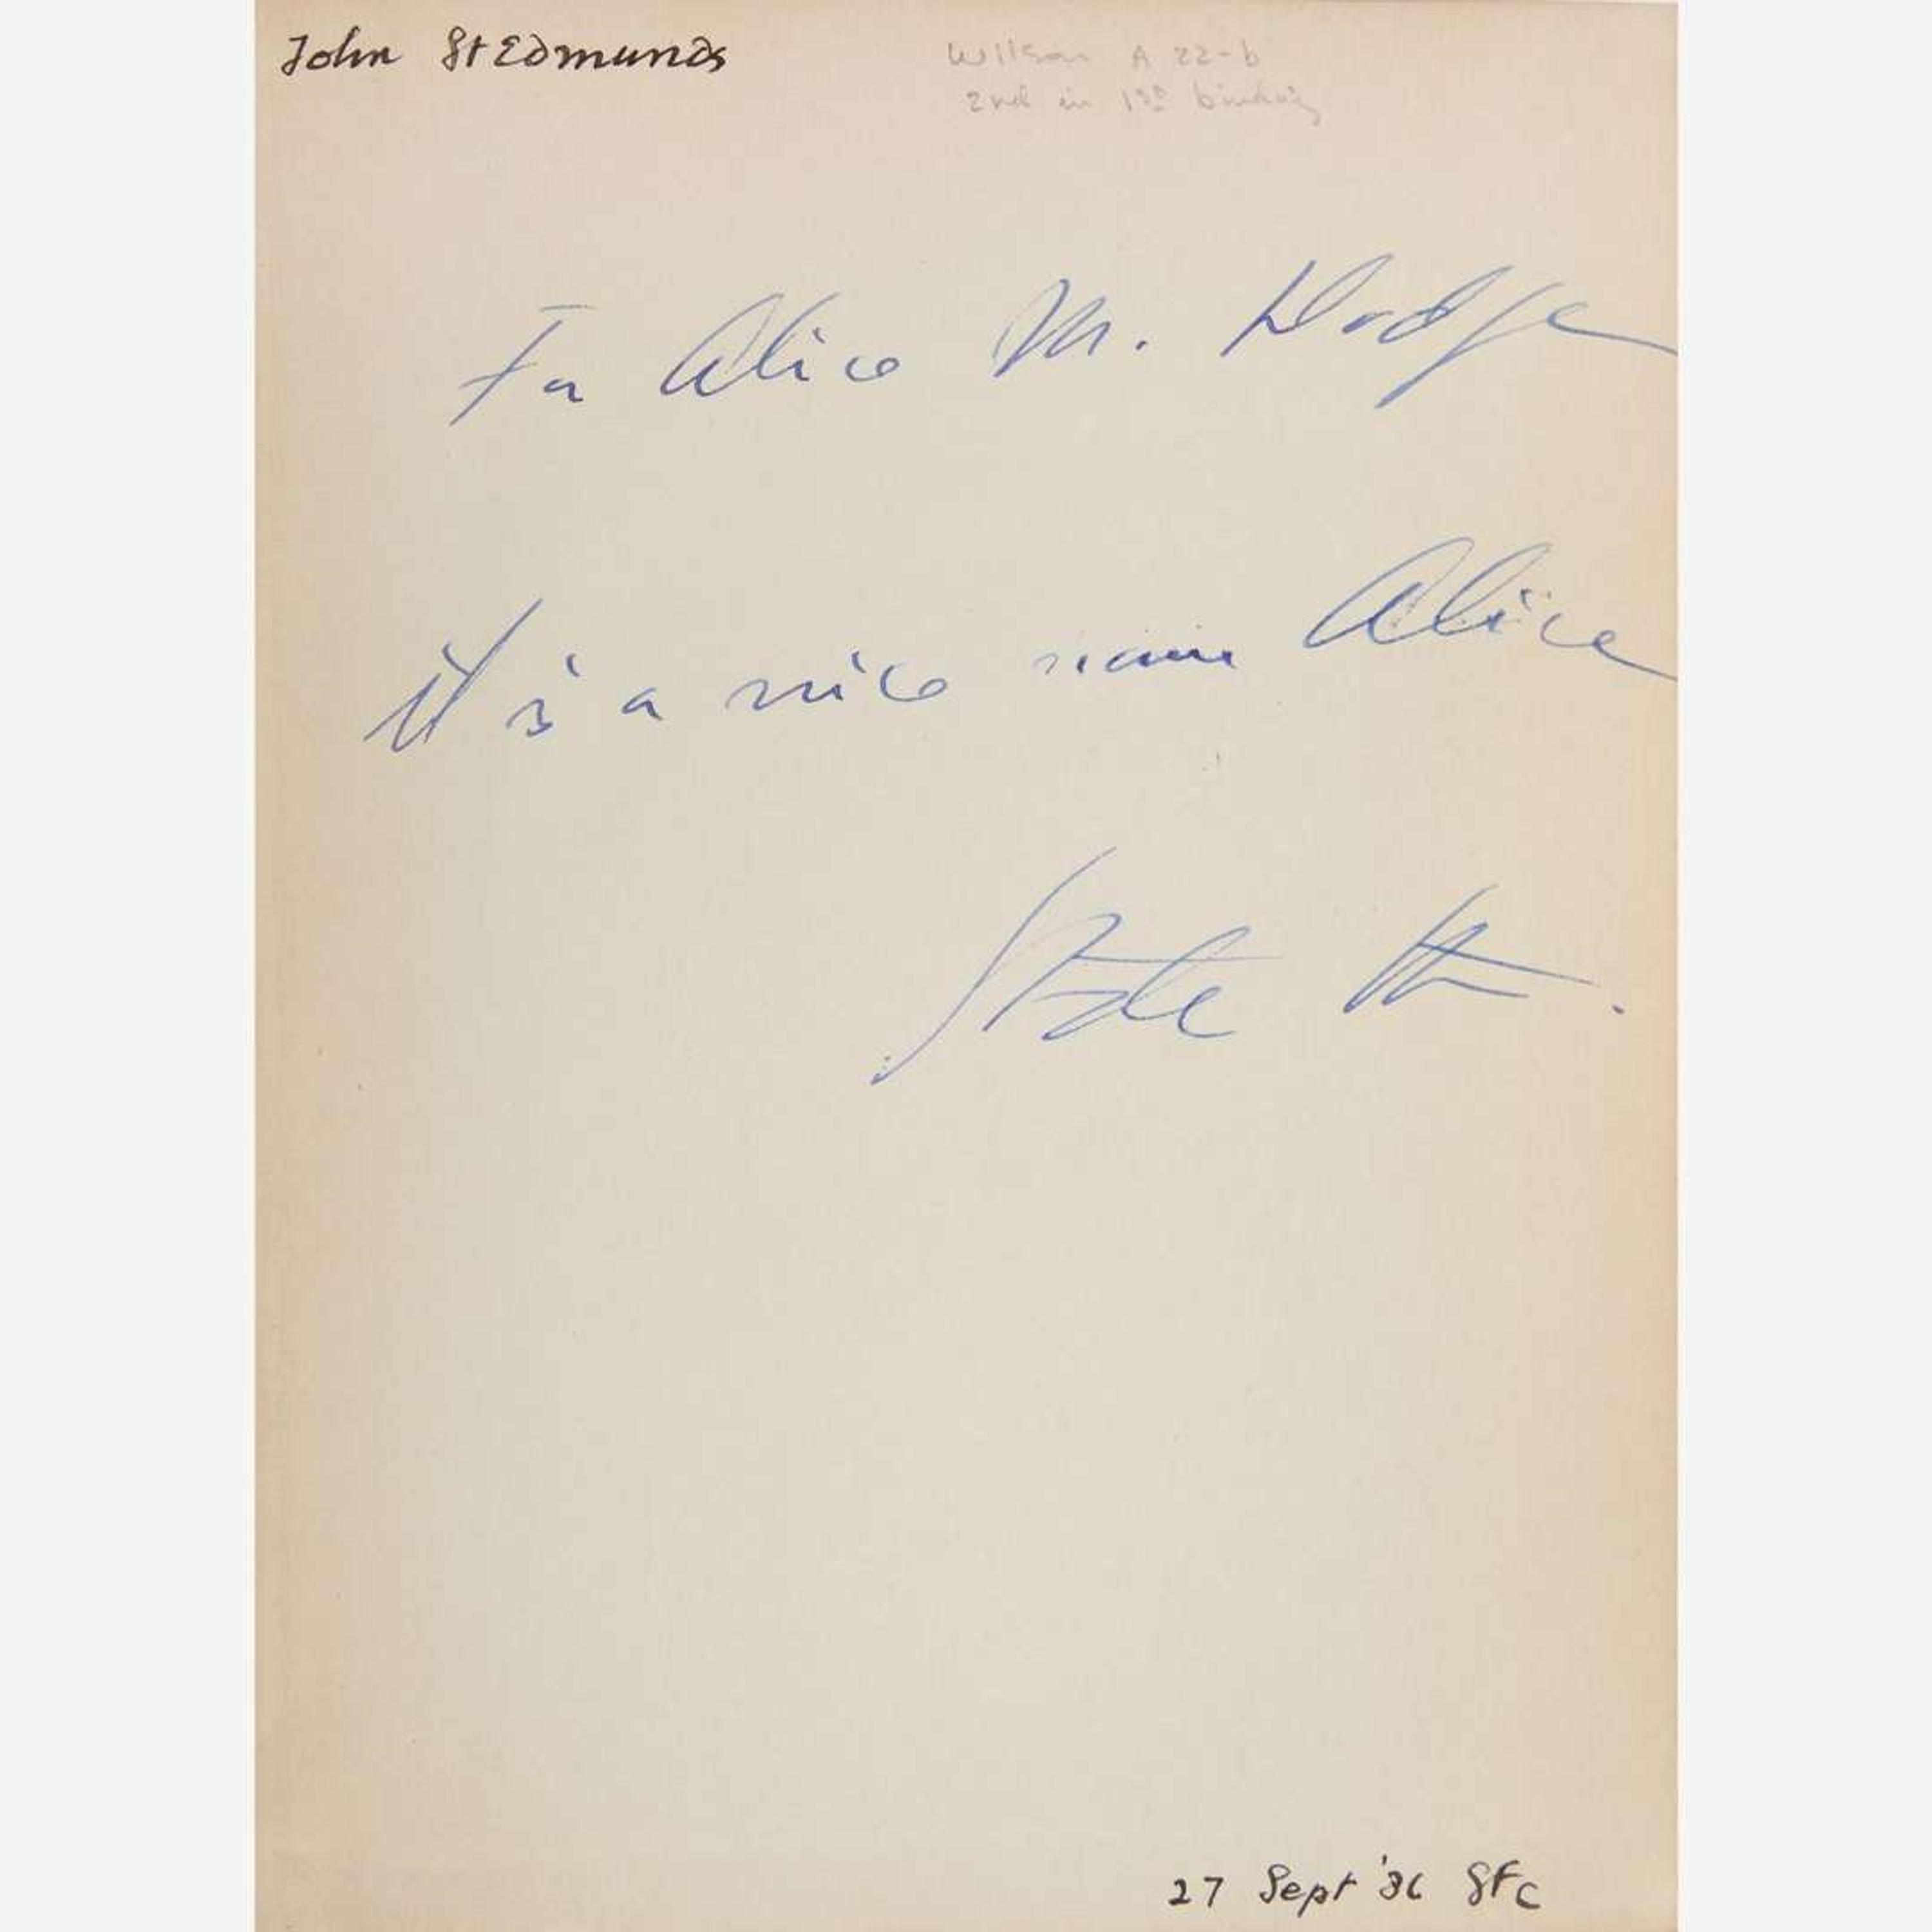 John St Edmunds
Wilson A 22-b
2nd in 1st binding
For Alice M. Dodge
It is a nice name Alice
Gtrde Stn.
27 Sept '36 SFC